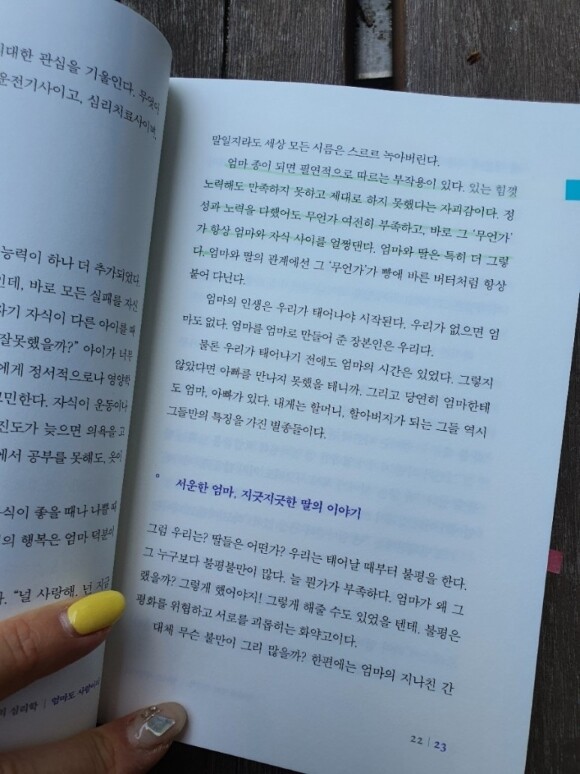 대한 관심을 기울인다. 무엇이
운전기사이고, 심리치료사이며,
능력이 하나 더 추가되었다.
인데, 바로 모든 실패를 자신
자기 자식이 다른 아이를 때
잘못했을까?" 아이가 너무
에게 정서적으로나 영양학
고민한다. 자식이 운동이나
진도가 늦으면 의욕을 고
에서 공부를 못해도, 옷이
자식이 좋을 때나 나쁠 때
의 행복은 엄마 덕분의
"널 사랑해. 넌 지금
의 심리학 | 엄마도 사람이다
말일지라도 세상 모든 시름은 스르르 녹아버린다.
엄마 종이 되면 필연적으로 따르는 부작용이 있다. 있는 힘껏
노력해도 만족하지 못하고 제대로 하지 못했다는 자괴감이다. 정
성과 노력을 다했어도 무언가 여전히 부족하고, 바로 그 '무언가'
가 항상 엄마와 자식 사이를 얼쩡댄다. 엄마와 딸은 특히 더 그렇
다. 엄마와 딸의 관계에선 그 '무언가'가 빵에 바른 버터처럼 항상
붙어 다닌다.
엄마의 인생은 우리가 태어나야 시작된다. 우리가 없으면 엄
마도 없다. 엄마를 엄마로 만들어 준 장본인은 우리다.
물론 우리가 태어나기 전에도 엄마의 시간은 있었다. 그렇지
않았다면 아빠를 만나지 못했을 테니까. 그리고 당연히 엄마한테
도 엄마, 아빠가 있다. 내게는 할머니, 할아버지가 되는 그들 역시
그들만의 특징을 가진 별종들이다.
서운한 엄마, 지긋지긋한 딸의 이야기
그럼 우리는? 딸들은 어떤가? 우리는 태어날 때부터 불평을 한다.
그 누구보다 불평불만이 많다. 늘 뭔가가 부족하다. 엄마가 왜 그
랬을까? 그렇게 했어야지! 그렇게 해줄 수도 있었을 텐데. 불평은
평화를 위협하고 서로를 괴롭히는 화약고이다.
대체 무슨 불만이 그리 많을까? 한편에는 엄마의 지나친 간
22 | 23